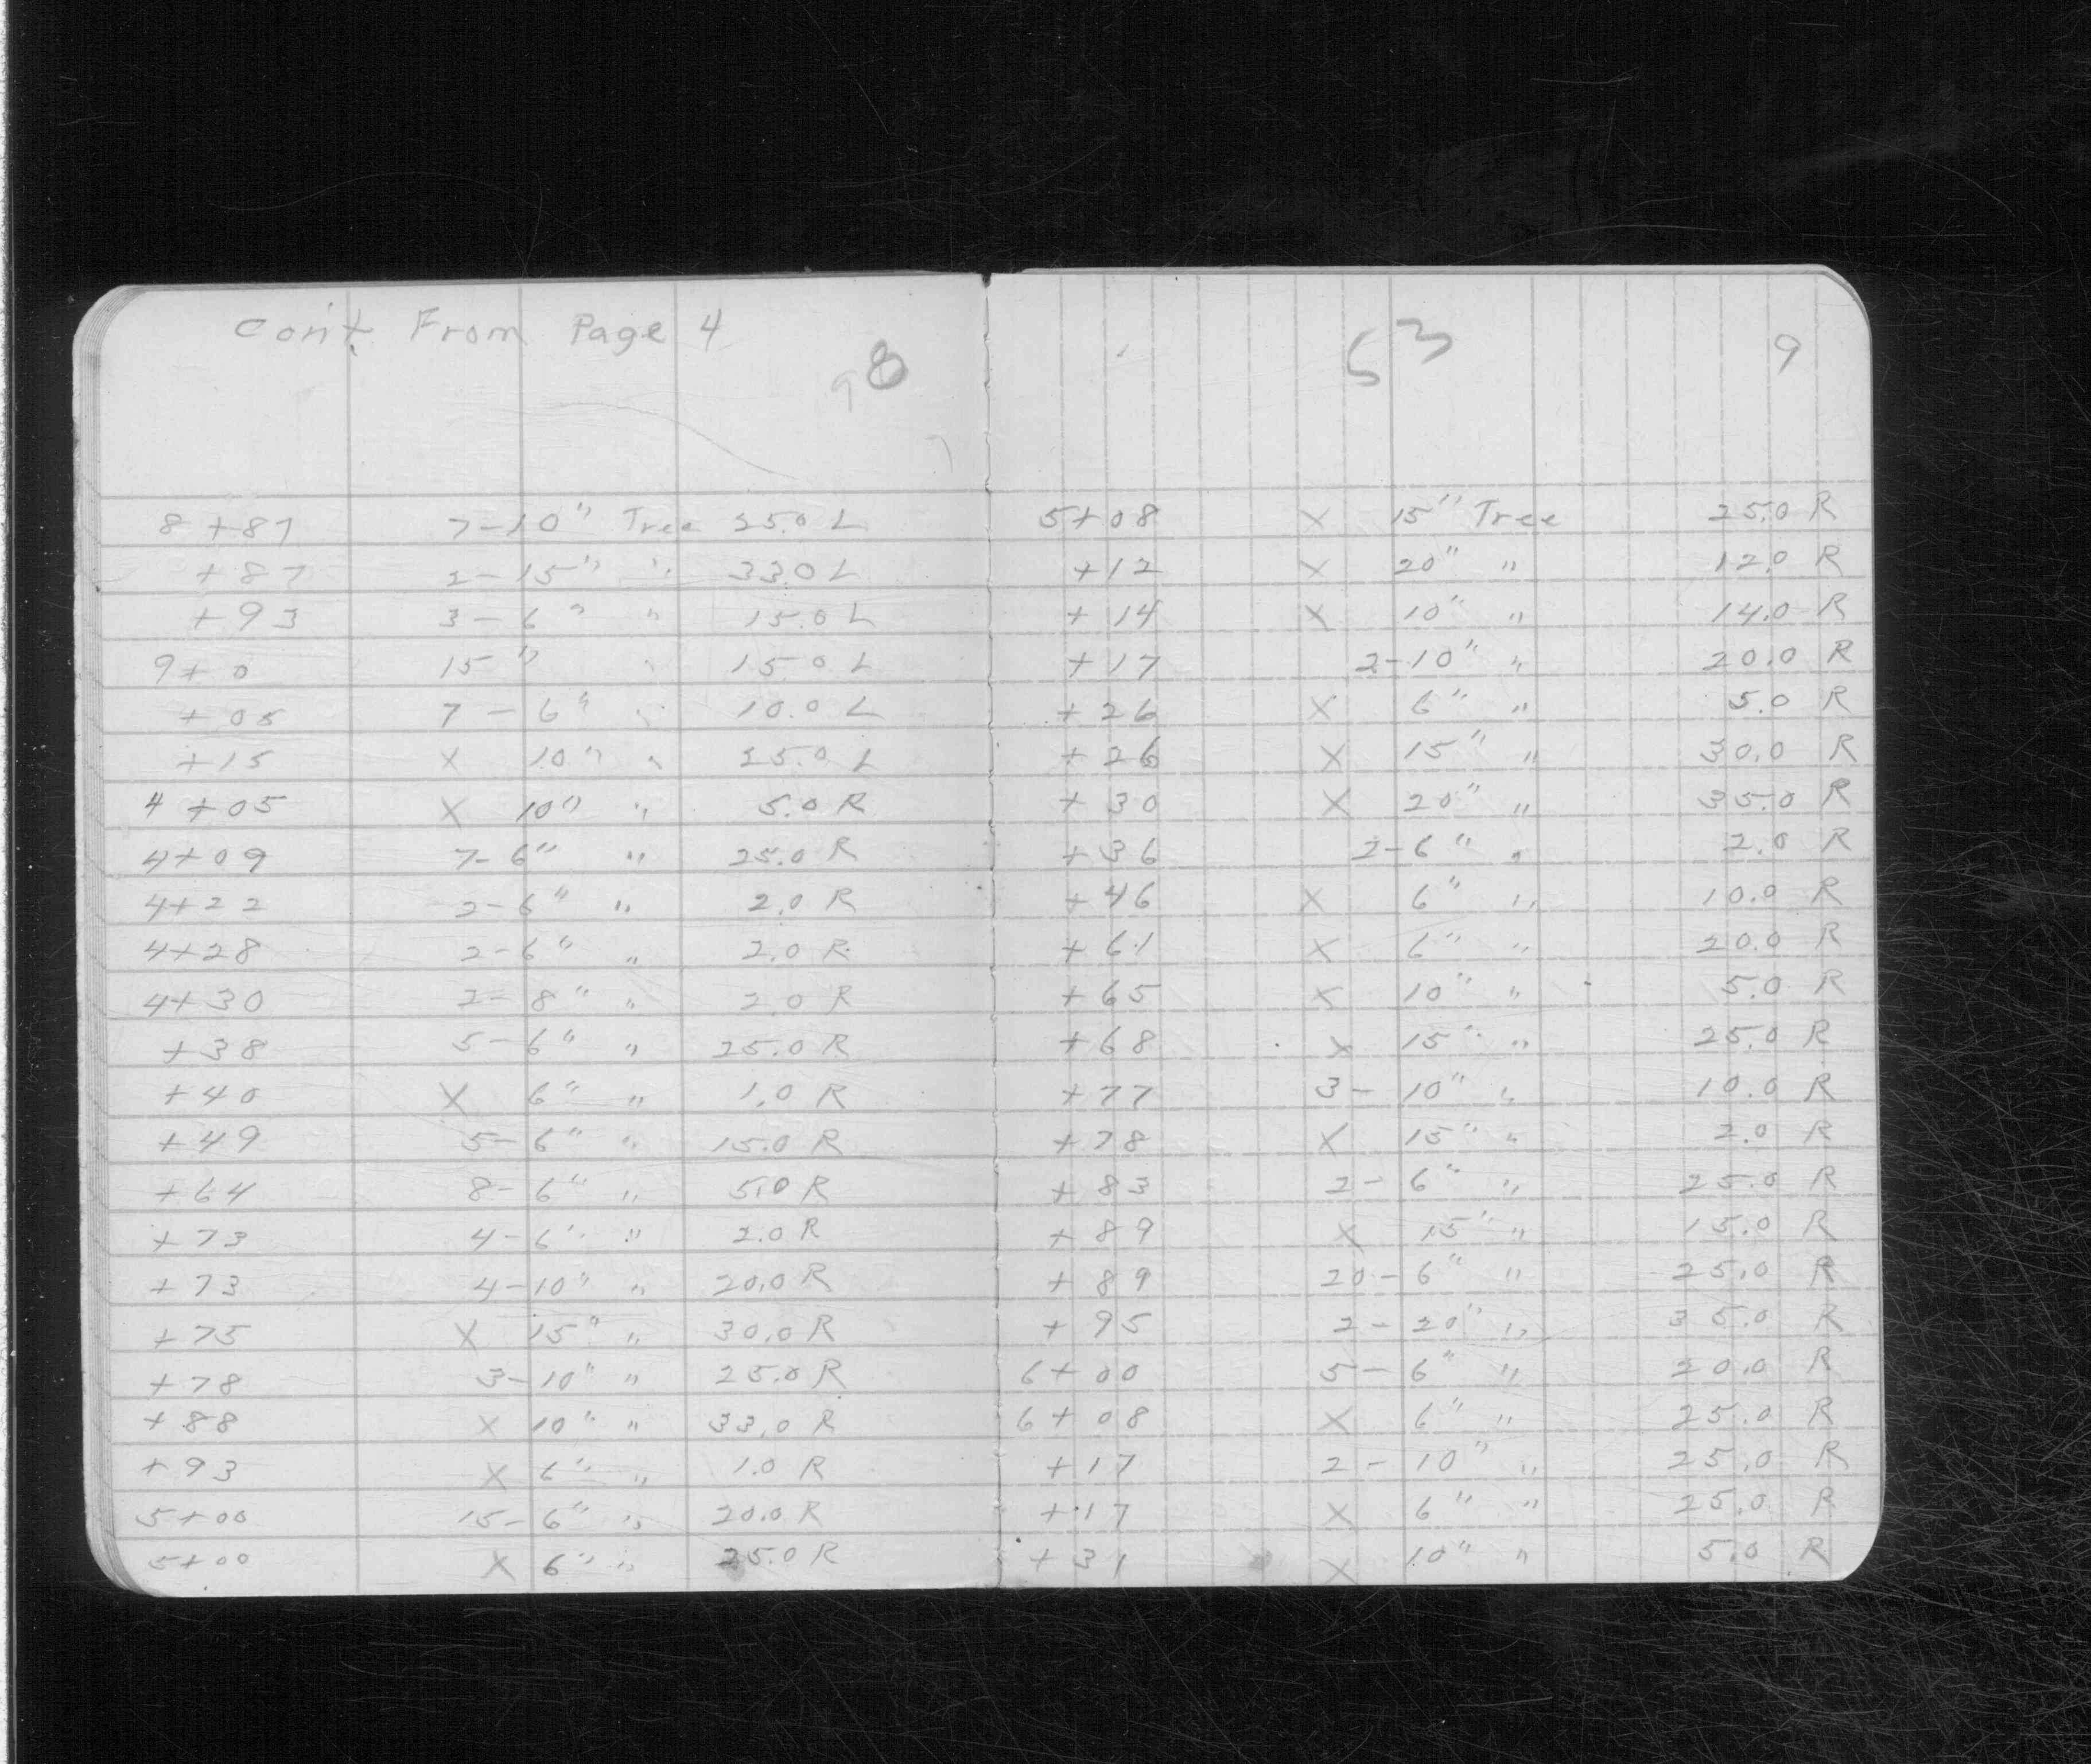 Con't From Page 4
8
8+87 7-10" Tree 25.0 L
+87 2-15" " 33.0 L
+93 3-6" " 15.0 L
9+0 15" " 15.0 L
+05 7-6" " 10.0 L
+15 X 10" " 25.0 L
4+05 X 10" " 5.0 R
4+09 7-6" " 25.0 R
4+22 2-6" " 2.0 R
4+28 2-6" " 2.0 R
4+30 2-8" " 2.0 R
+38 5-6" " 25.0 R
+40 X 6" " 1.0 R
+49 5-6" " 15.0 R
+64 8-6" " 5.0 R
+73 4-6" " 2.0 R
+73 4-10" " 20.0 R
+75 X 15" " 30.0 R
+78 3-10" " 25.0 R
+88 X 10" " 33.0 R
+93 X 6" " 1.0 R
5+00 15-6" " 20.0 R
5+00 X 6" " 25.0 R
53 9
5+08 X 15" Tree 25.0 R
+12 X 20" " 12.0 R
+14 X 10" " 14.0 R
+17 2-10" " 20.0 R
+26 X 6" " 5.0 R
+26 X 15" " 30.0 R
+30 X 20" " 35.0 R
+36 2-6" " 2.0 R
+46 X 6" " 10.0 R
+61 X 6" " 20.0 R
+65 X 10" " 5.0 R
+68 X 15" " 25.0 R
+77 3-10" " 10.0 R
+78 X 15" " 2.0 R
+83 2-6" " 25.0 R
+89 X 15" " 15.0 R
+89 20-6" " 25.0 R
+95 2-20" " 35.0 R
6+00 5-6" " 20.0 R
6+08 X 6" " 25.0 R
+17 2-10" " 25.0 R
+17 X 6" " 25.0 R
+31 X 10" " 5.0 R